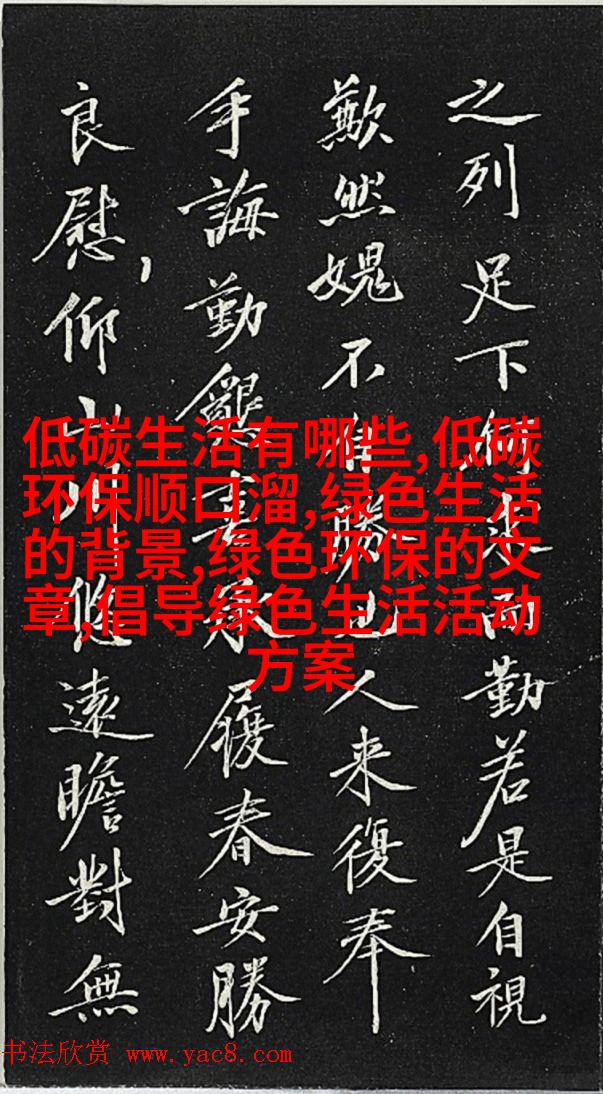 之列足下而勤若是自視
然媿不勝也人来復奉
手誨勤懇承履春安勝
良慰,仰山川悠遠瞻對無
低碳生活有哪些,低碳
环保顺口溜,绿色生活
的背景,绿色环保的文
章,倡导绿色生活活动
方案
书法欣赏 www.yac8.com